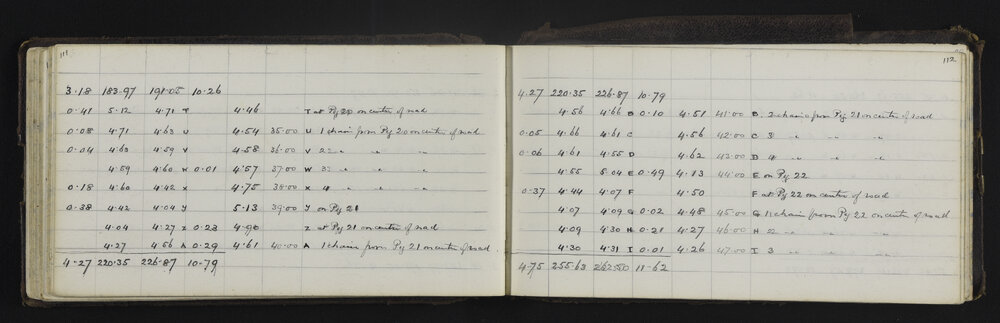 111
3·18 183·97 191·05 10·26
0·41 5·12 4·71 T 4·46 T at Pg 20 on centre of road
0·08 4·71 4·63 U 4·54 35·00 U 1 chain from Pg 20 on centre of road
0·04 4·63 4·59 V 4·58 36·00 V 2 " " " "
4·59 4·60 W 0·01 4·57 37·00 W 3 " " " "
0·18 4·60 4·42 X 4·75 38·00 X 4 " " " "
0·38 4·42 4·04 Y 5·13 39·00 Y on Pg 21
4·04 4·27 Z 0·23 4·90 Z at Pg 21 on centre of road
4·27 4·56 A 0·29 4·61 40·00 A 1 chain from Pg 21 on centre of road
4·27 220·35 226·87 10·79
112
4·27 220·35 226·87 10·79
4·56 4·66 B 0·10 4·51 41·00 B. 2 chains from Pg 21 on centre of road
0·05 4·66 4·61 C 4·56 42·00 C 3 " " " "
0·06 4·61 4·55 D 4·62 43·00 D 4 " " " "
4·55 5·04 E 0·49 4·13 44·00 E on Pg 22
0·37 4·44 4·07 F 4·50 F at Pg 22 on centre of road
4·07 4·09 G 0·02 4·48 45·00 G 1 chain from Pg 22 on centre of road
4·09 4·30 H 0·21 4·27 46·00 H 2 " " " "
4·30 4·31 I 0·01 4·26 47·00 I 3 " " " "
4·75 255·63 262·50 11·62